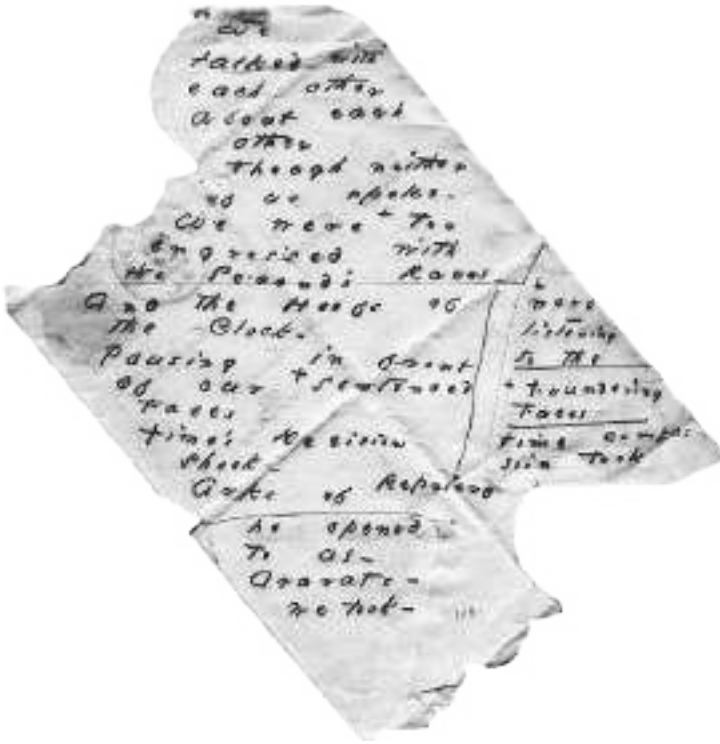 We
talked with
each other
about each
other
Though neither
of us spoke –
We were + too
engrossed with
the Second's Races
And the Hoofs of
the Clock –
Pausing in front
of our + sentenced
Faces
Time's Decision
shook –
Arks of Reprieve
he opened
to us –
Ararats –
we took –
+ were
listening
to the
+ foundering
Faces
time compas
sion took